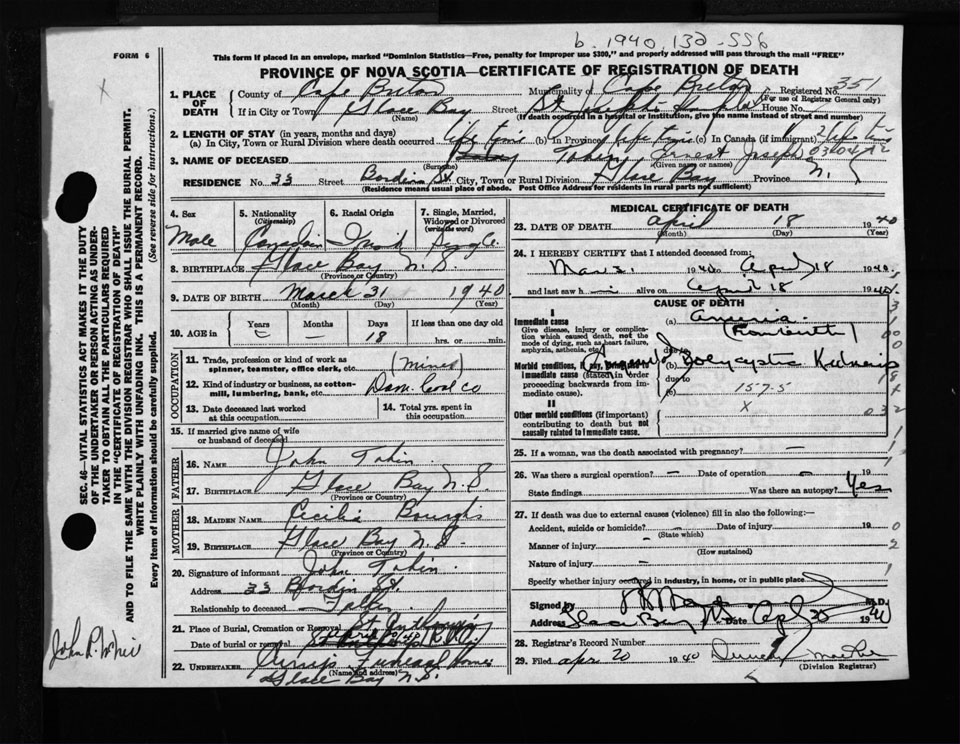 b. 1940 132-556
FORM 6
This form if placed in an envelope, marked "Dominion Statistics—Free, penalty for improper use $300," and properly addressed will pass through the mail "FREE"
PROVINCE OF NOVA SCOTIA—CERTIFICATE OF REGISTRATION OF DEATH
1. PLACE OF DEATH
County of Cape Breton Municipality of Cape Breton Registered No. 351
(For use of Registrar General only)
If in City or Town Glace Bay Street St Joseph's Hospital House No.
(Name) (If death occurred in a hospital or institution, give the name instead of street and number)
2. LENGTH OF STAY (in years, months and days)
(a) In City, Town or Rural Division where death occurred life time (b) In Province life time (c) In Canada (if immigrant) life time
3. NAME OF DECEASED Tobin Ernest Joseph
(Surname) (Given name or names)
RESIDENCE No. 33 Street Bordin St. City, Town or Rural Division Glace Bay Province N.
(Residence means usual place of abode. Post Office Address for residents in rural parts not sufficient)
SEC. 46—VITAL STATISTICS ACT MAKES IT THE DUTY
OF THE UNDERTAKER OR PERSON ACTING AS UNDER-
TAKER TO OBTAIN ALL THE PARTICULARS REQUIRED
IN THE "CERTIFICATE OF REGISTRATION OF DEATH"
AND TO FILE THE SAME WITH THE DIVISION REGISTRAR WHO SHALL ISSUE THE BURIAL PERMIT.
WRITE PLAINLY WITH UNFADING INK. THIS IS A PERMANENT RECORD.
Every item of information should be carefully supplied. (See reverse side for instructions.)
4. Sex
Male
5. Nationality
(Citizenship)
Canadian
6. Racial Origin
Irish
7. Single, Married, Widowed or Divorced
(write the word)
Single
8. BIRTHPLACE Glace Bay N.S.
(Province or Country)
9. DATE OF BIRTH March 31 1940
(Month) (Day) (Year)
10. AGE in Years — Months — Days 18 If less than one day old
hrs. or min.
OCCUPATION
11. Trade, profession or kind of work as spinner, teamster, office clerk, etc. (Miner)
12. Kind of industry or business, as cotton-mill, lumbering, bank, etc. Dom. Coal Co
13. Date deceased last worked at this occupation
14. Total yrs. spent in this occupation
15. If married give name of wife or husband of deceased
FATHER
16. NAME John Tobin
17. BIRTHPLACE Glace Bay N.S.
(Province or Country)
MOTHER
18. MAIDEN NAME Cecilia
19. BIRTHPLACE Glace Bay N.S.
(Province or Country)
20. Signature of informant John Tobin
Address 33 Bordin St.
Relationship to deceased Father
21. Place of Burial, Cremation or Removal St Anthony's
Date of burial or removal 1940
22. UNDERTAKER Funeral Home
(Name and address)
Glace Bay N.S.
MEDICAL CERTIFICATE OF DEATH
23. DATE OF DEATH April 18 1940
(Month) (Day) (Year)
24. I HEREBY CERTIFY that I attended deceased from:
Mar 31 1940 to April 18 1940.
and last saw h alive on April 18 1940.
CAUSE OF DEATH
I
Immediate cause
Give disease, injury or complication which caused death, not the mode of dying, such as heart failure, asphyxia, asthenia, etc.
(a)
due to
Morbid conditions, if any, giving rise to immediate cause (Stated in order proceeding backwards from immediate cause)
(b) Polycystic Kidneys
due to
(c) 157-5
II
Other morbid conditions (if important) contributing to death but not causally related to immediate cause.
X
25. If a woman, was the death associated with pregnancy? —
26. Was there a surgical operation? — Date of operation — 19
State findings Was there an autopsy? Yes
27. If death was due to external causes (violence) fill in also the following:—
Accident, suicide or homicide? — Date of injury 19
(State which)
Manner of injury —
(How sustained)
Nature of injury —
Specify whether injury occurred in industry, in home, or in public place
Signed by M.D.
Address Glace Bay 1940
28. Registrar's Record Number
29. Filed Apr 20 1940
(Division Registrar)